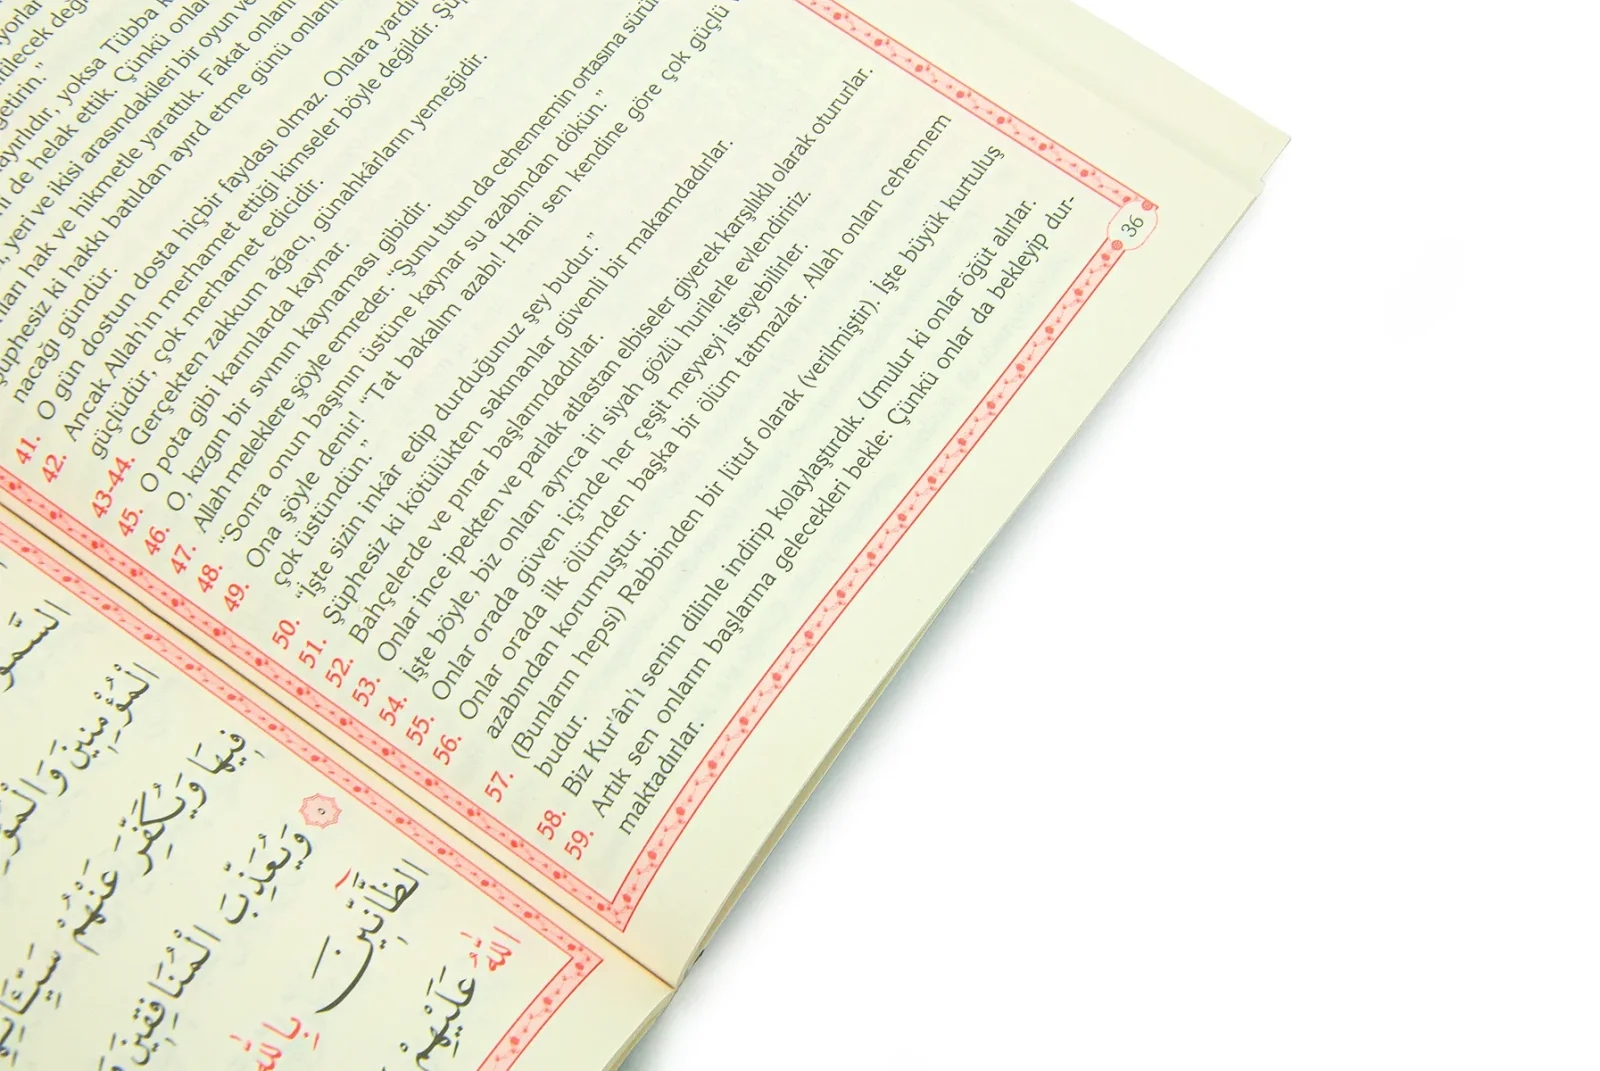 yorlar
tilecek değ
getirin."
ayırlıdır, yoksa Tübba k
n de helak ettik. Çünkü onlar
, yeri ve ikisi arasındakileri bir oyun ve
nları hak ve hikmetle yarattık. Fakat onların
Şüphesiz ki hakkı batıldan ayırd etme günü onların
nacağı gündür.
41. O gün dostun dosta hiçbir faydası olmaz. Onlara yardı
42. Ancak Allah'ın merhamet ettiği kimseler böyle değildir. Şüp
güçlüdür, çok merhamet edicidir.
43-44. Gerçekten zakkum ağacı, günahkârların yemeğidir.
45. O pota gibi karınlarda kaynar.
46. O, kızgın bir sıvının kaynaması gibidir.
47. Allah meleklere şöyle emreder. "Şunu tutun da cehennemin ortasına sürü
48. "Sonra onun başının üstüne kaynar su azabından dökün."
49. Ona şöyle denir! "Tat bakalım azabı! Hani sen kendine göre çok güçlü
çok üstündün."
50. "İşte sizin inkâr edip durduğunuz şey budur."
51. Şüphesiz ki kötülükten sakınanlar güvenli bir makamdadırlar.
52. Bahçelerde ve pınar başlarındadırlar.
53. Onlar ince ipekten ve parlak atlastan elbiseler giyerek karşılıklı olarak otururlar.
54. İşte böyle, biz onları ayrıca iri siyah gözlü hurilerle evlendiririz.
55. Onlar orada güven içinde her çeşit meyveyi isteyebilirler.
56. Onlar orada ilk ölümden başka bir ölüm tatmazlar. Allah onları cehennem
azabından korumuştur.
57. (Bunların hepsi) Rabbinden bir lütuf olarak (verilmiştir). İşte büyük kurtuluş
budur.
58. Biz Kur'ân'ı senin dilinle indirip kolaylaştırdık. Umulur ki onlar öğüt alırlar.
59. Artık sen onların başlarına gelecekleri bekle: Çünkü onlar da bekleyip dur-
maktadırlar.
36
السَّمٰو
الْمُؤْمِن۪ينَ وَالْمُؤ
ف۪يهَا وَيُكَفِّرَ عَنْهُمْ سَيِّـَٔاتِهِ
٥ وَيُعَذِّبَ الْمُنَافِق۪ينَ وَ
الظَّٓانّ۪ينَ بِاللّٰهِ
اللّٰهُ عَلَيْهِمْ